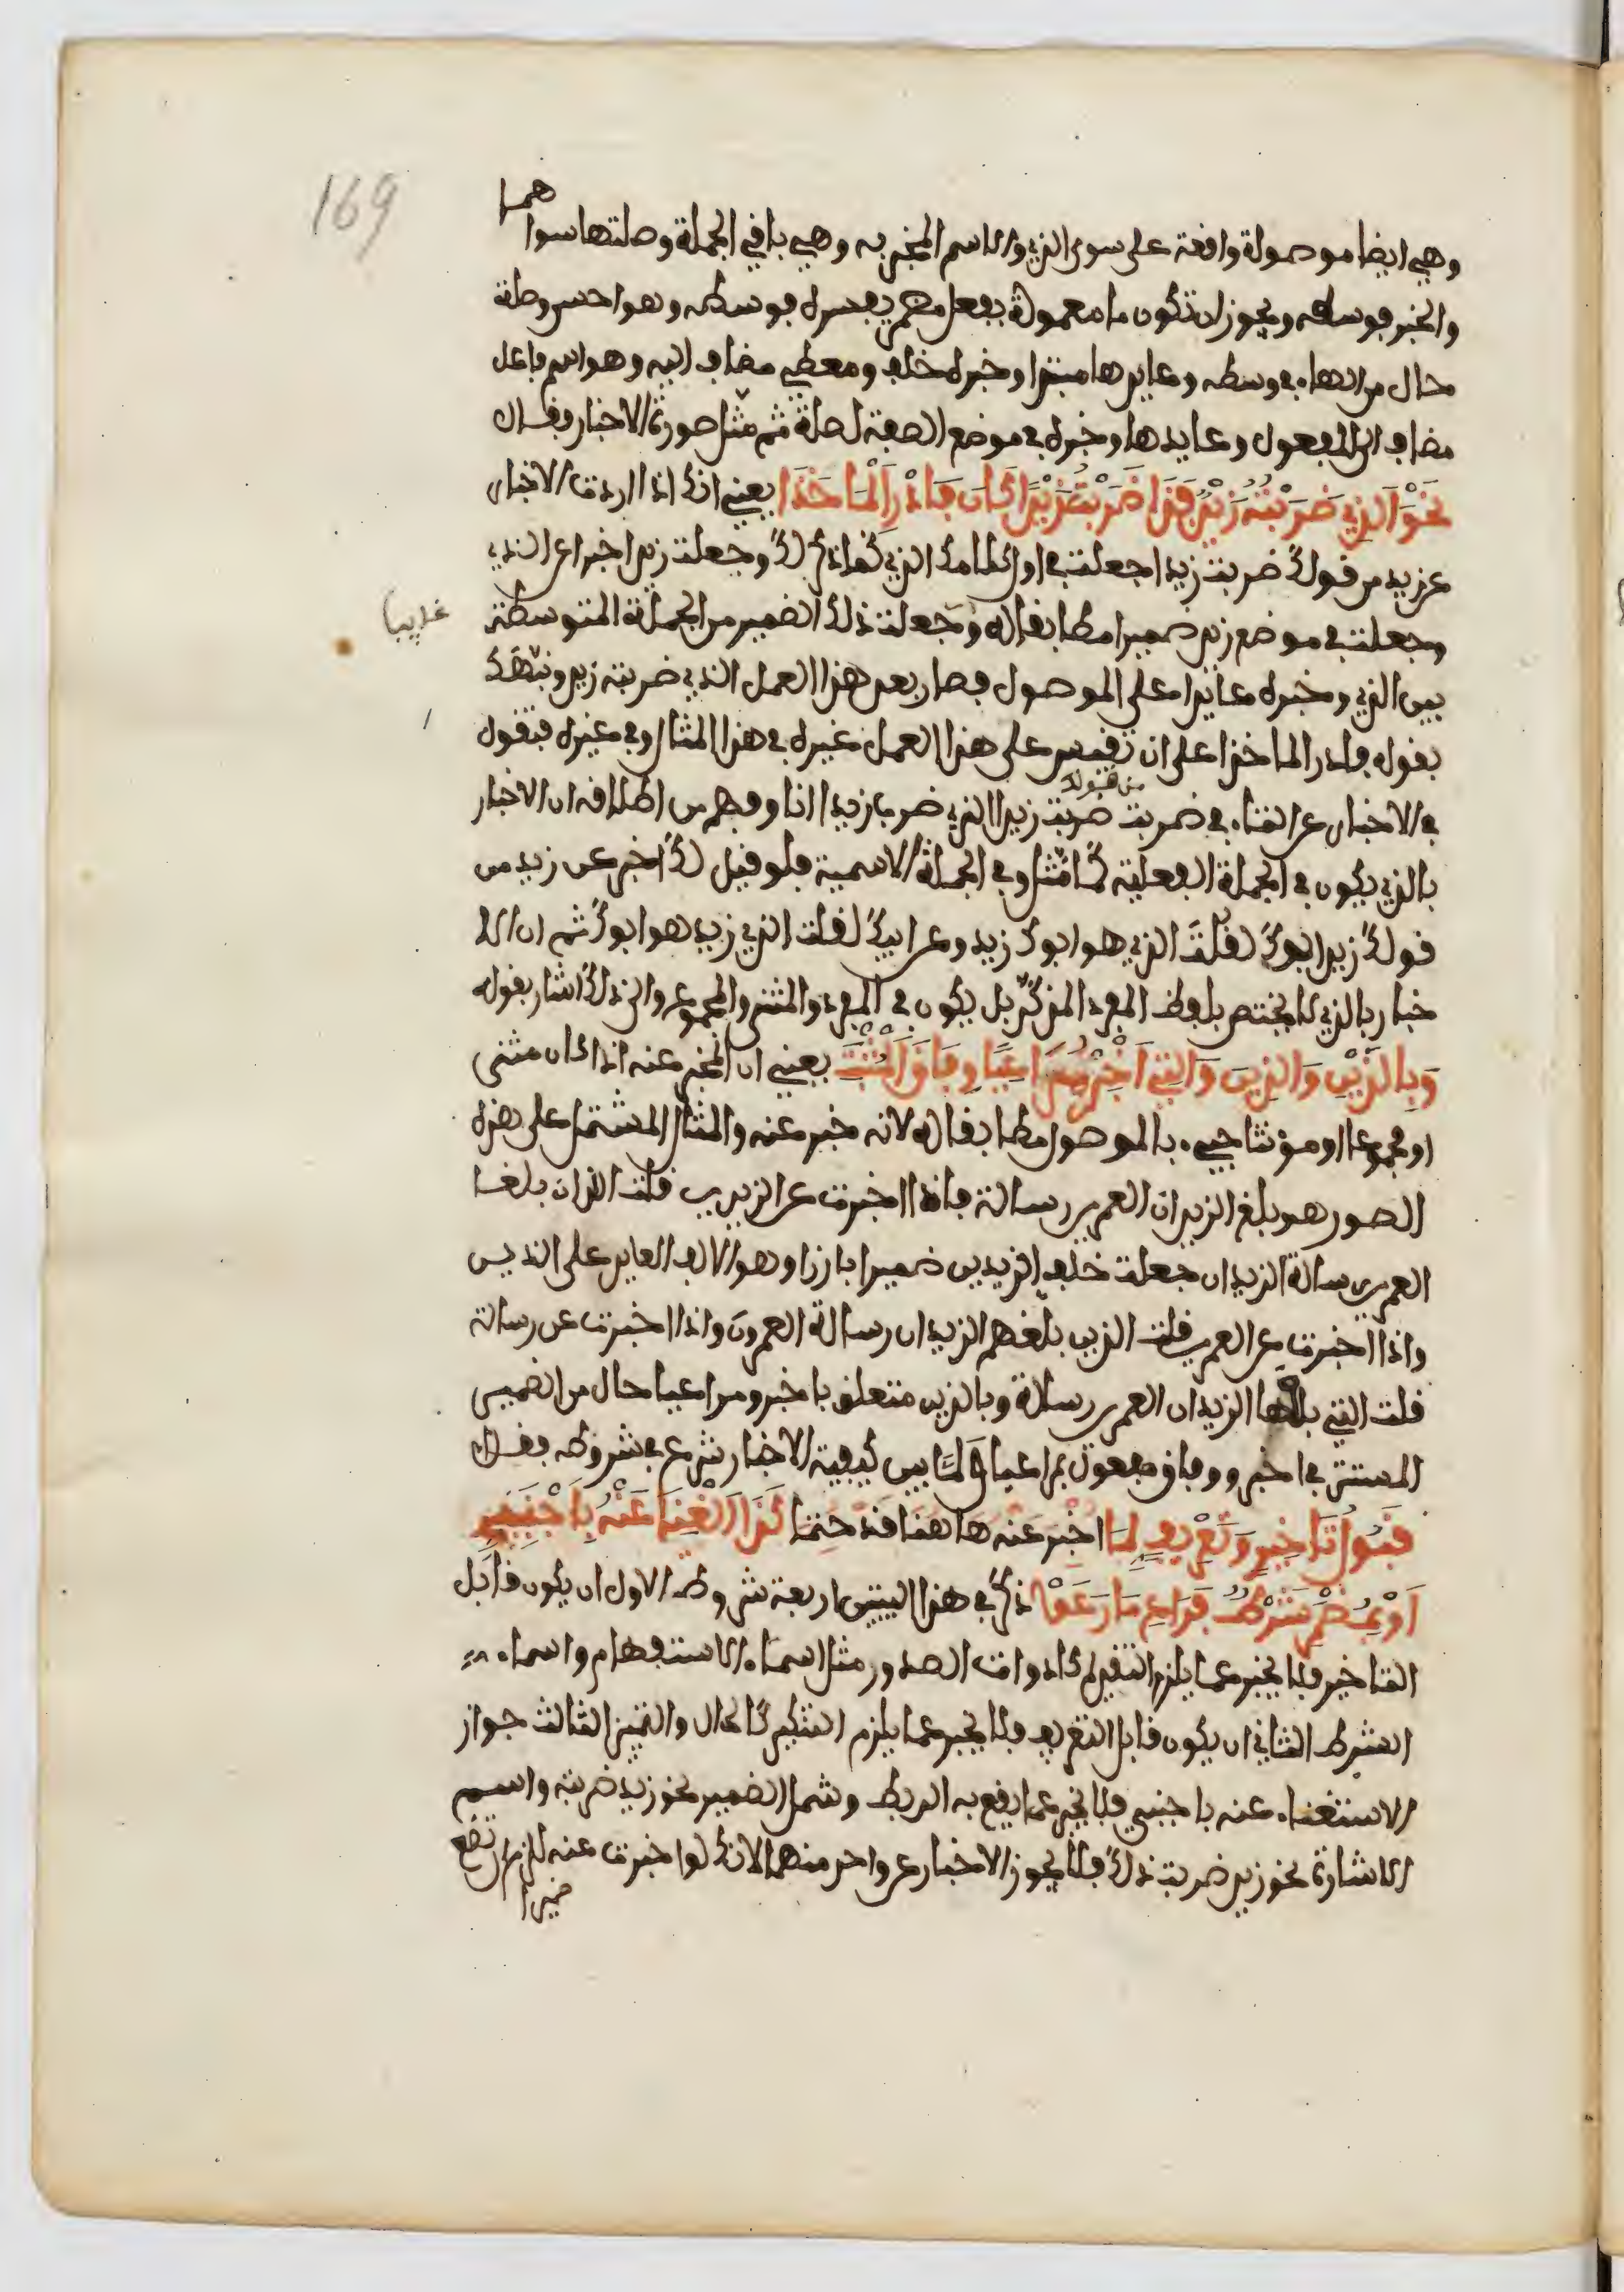 169
وهي ايضا موصولة واقعة على سوى الذي والاسم المخبر به وهي باقي الجملة وصلتها سوا
هما
والخبر فوسطه ويجوز ان تكون ما معمولة بفعل مضمر يفسره فوسطه وهو احسن وصلة
حال من الهاء في وسطه وعايدها مبتدا وخبره خلف ومعطي مضاف اليه وهو اسم فاعل
مضاف الى المفعول وعايدها وخبره في موضع الصفة لصلة ثم مثل صورة الاخبار وفقال
نَحْوُ الذِي ضَرَبْتُهُ زَيْدٌ فَذَا ضَرَبْتُ زَيْدًا كَانَ فَادْرِ الْمَاخَذَا يعني انك اذا اردت الاخبار
عن زيد من قولك ضربت زيدا جعلت في اول كلامك الذي كما ذكر لك وجعلت زيدا خبرا عن الذي
وجعلت في موضع زيد ضميرا مطابقا له وجعلت ذلك الضمير من الجملة المتوسطة
بين الذي وخبره عايدا على الموصول فصار بعد هذا العمل الذي ضربته زيد ونبهك
بقوله فادر الماخذا على ان تقيس على هذا العمل غيره في هذا المثال وفي غيره فتقول
من قولك
في الاخبار عن التاء في ضربت ضربت زيدا الذي ضرب زيدا انا وفهم من اطلاقه ان الاخبار
بالذي يكون في الجملة الفعلية كما مثل وفي الجملة الاسمية فلو قيل لك اخبر عن زيد من
قولك زيد ابوك لقلت الذي هو ابوك زيد وعن ابيك لقلت الذي زيد هو ابوك ثم ان الا
خبار بالذي لا يختص بلفظ المفرد المذكر بل يكون في المفرد والمثنى والمجموع والى ذلك اشار بقوله
وَبِاللَّذَيْنِ وَالذِينَ وَالتِي أَخْبِرْ مُرَاعِيًا وِفَاقَ الْمُثْبَتِ يعني ان المخبر عنه اذا كان مثنى
او مجموعا او مؤنثا جيء بالموصول مطابقا له لانه خبر عنه والمثال المشتمل على هذه
الصور هو بلغ الزيدان العمرين رسالة فاذا اخبرت عن الزيدين قلت اللذان بلغا
العمرين رسالة الزيدان جعلت خلف الزيدين ضميرا بارزا وهو الالف العايد على الذين
واذا اخبرت عن العمرين قلت الذين بلغهم الزيدان رسالة العمرون واذا اخبرت عن رسالة
قلت التي بلغها الزيدان العمرين رسالة وبالذين متعلق باخبر ومراعيا حال من الضمير
المستتر في اخبر ووفاق مفعول بمراعيا ولما بين كيفية الاخبار شرع في شروطه فقال
قَبُولُ تَاخِيرٍ وَتَعْرِيفٍ لِمَا اخبر عنه هاهنا قد حتما كَذَا الْغِنَى عَنْهُ بِأَجْنَبِيٍّ
اَوْ بِمُضْمَرٍ شَرْطٌ فَرَاعِ مَا رَعَوْا ذكر في هذا البيتين اربعة شروط الاول ان يكون قابل
التاخير فلا يخبر عما يلزم التقديم كادوات الصدور مثل اسماء الاستفهام واسماء
الشرط الثاني ان يكون قابل التعريف فلا يخبر عما يلزم التنكير كالحال والتمييز الثالث جواز
الاستغناء عنه باجنبي فلا يخبر عما يقع به الربط وشمل الضمير نحو زيد ضربته واسم
الاشارة نحو زيد ضربت ذلك فلا يجوز الاخبار عن واحد منهما لانك لو اخبرت عنه للزم ان تضع
ضميرا